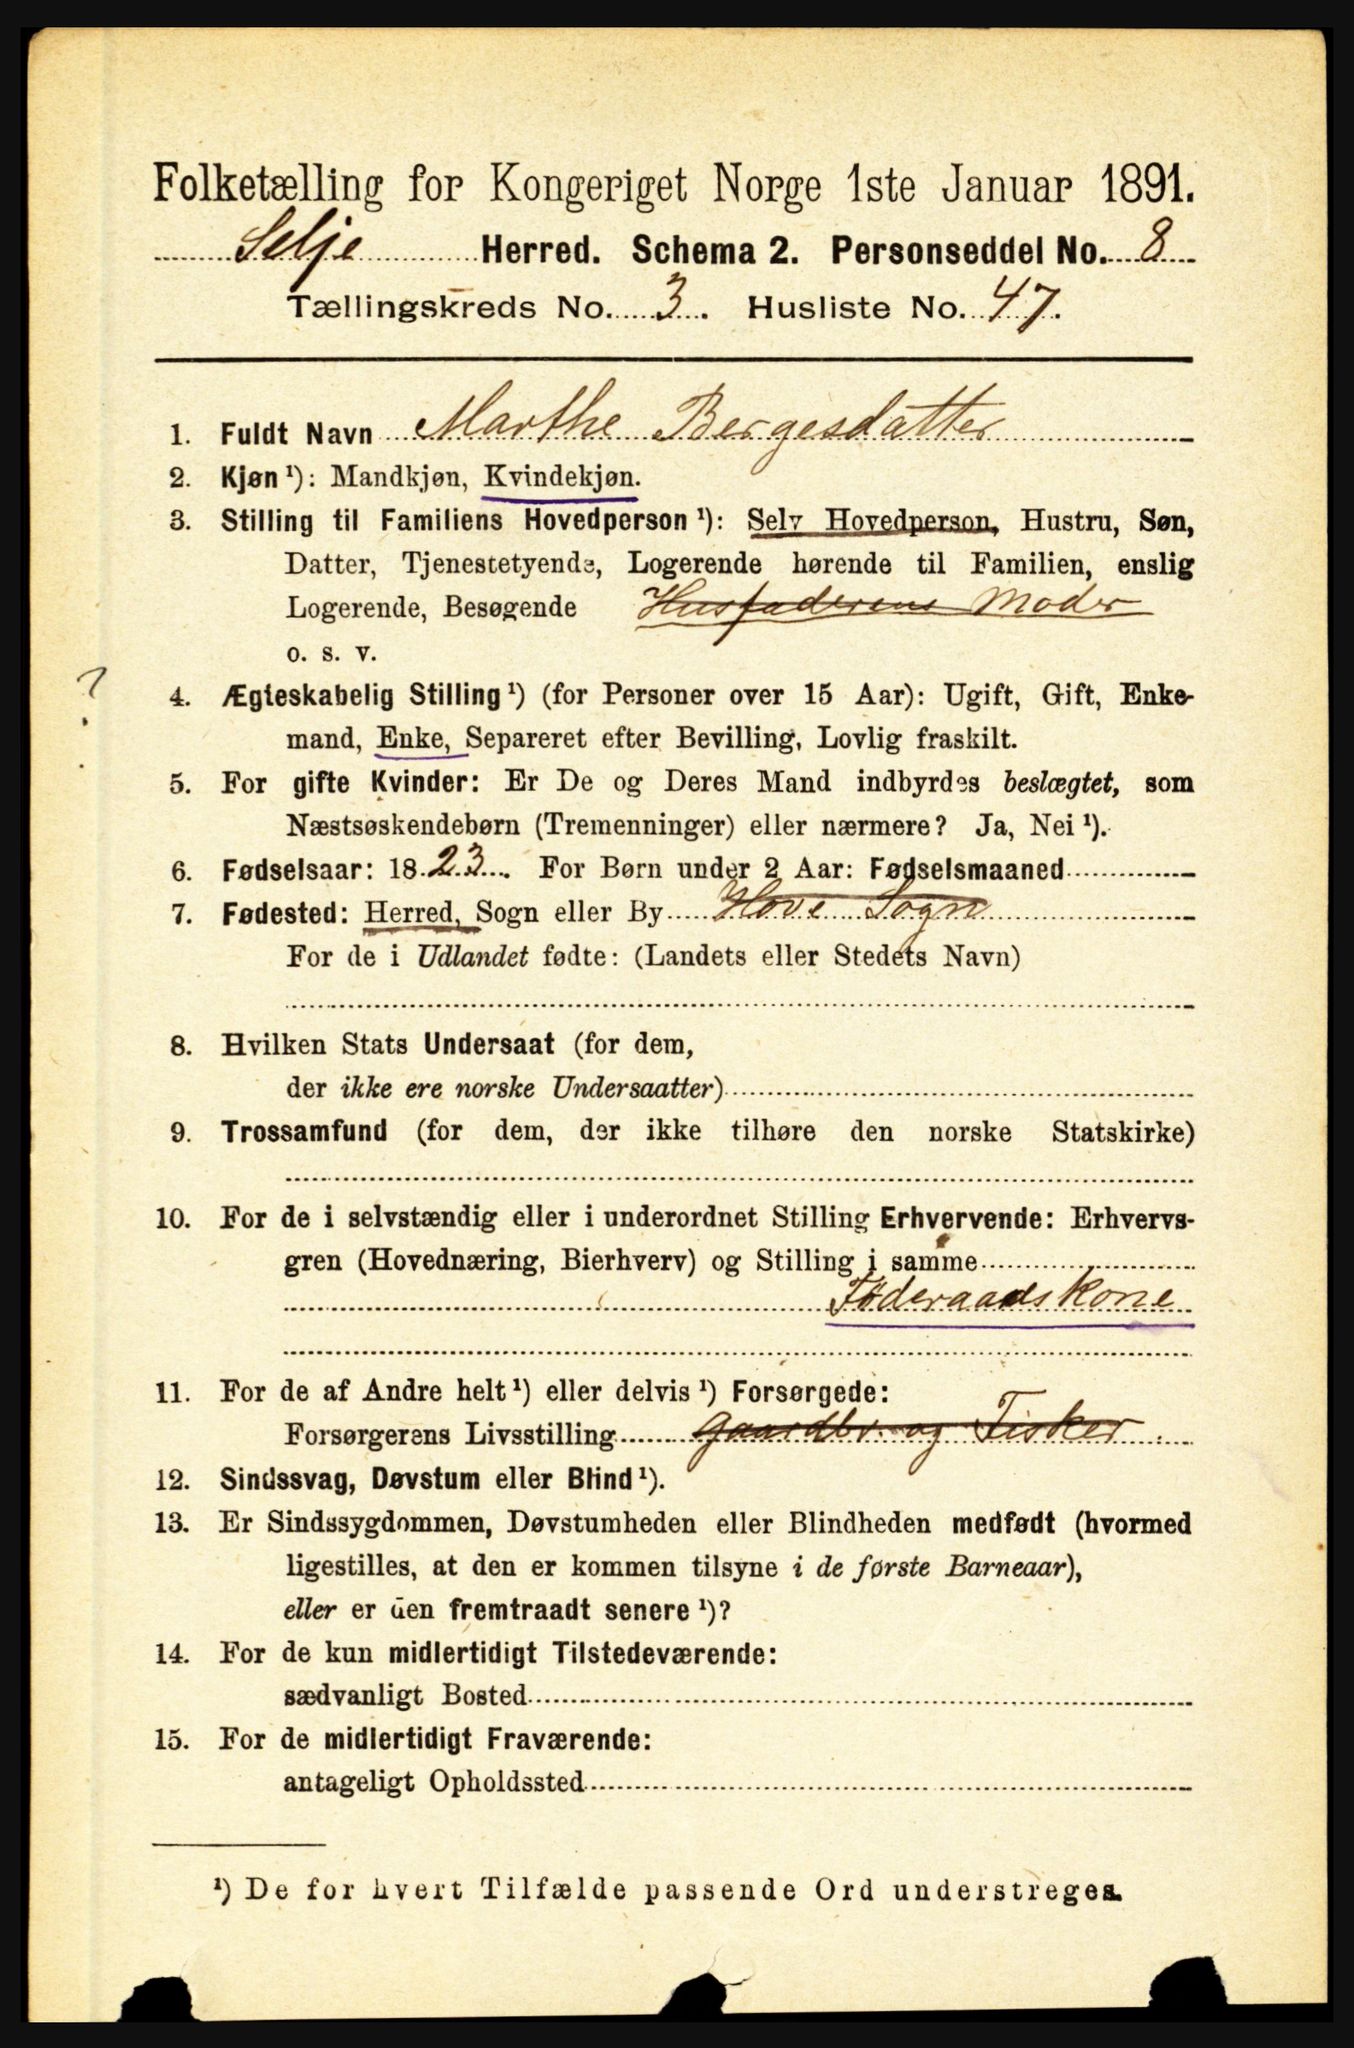 Folketælling for Kongeriget Norge 1ste Januar 1891.
Selje Herred. Schema 2. Personseddel No. 8
Tællingskreds No. 3. Husliste No. 47.
1. Fuldt Navn Marthe Bergesdatter
2. Kjøn ¹): Mandkjøn, Kvindekjøn.
3. Stilling til Familiens Hovedperson ¹): Selv Hovedperson, Hustru, Søn,
Datter, Tjenestetyende, Logerende hørende til Familien, enslig
Logerende, Besøgende Husfaderens Moder
o. s. v.
?
4. Ægteskabelig Stilling ¹) (for Personer over 15 Aar): Ugift, Gift, Enke-
mand, Enke, Separeret efter Bevilling, Lovlig fraskilt.
5. For gifte Kvinder: Er De og Deres Mand indbyrdes beslægtet, som
Næstsøskendebørn (Tremenninger) eller nærmere? Ja, Nei ¹).
6. Fødselsaar: 1823. For Børn under 2 Aar: Fødselsmaaned
7. Fødested: Herred, Sogn eller By Hove Sogn
For de i Udlandet fødte: (Landets eller Stedets Navn)
8. Hvilken Stats Undersaat (for dem,
der ikke ere norske Undersaatter)
9. Trossamfund (for dem, der ikke tilhøre den norske Statskirke)
10. For de i selvstændig eller i underordnet Stilling Erhvervende: Erhvervs-
gren (Hovednæring, Bierhverv) og Stilling i samme
Føderaadskone
11. For de af Andre helt ¹) eller delvis ¹) Forsørgede:
Forsørgerens Livsstilling Gaardbr. og Fisker
12. Sindssvag, Døvstum eller Blind ¹).
13. Er Sindssygdommen, Døvstumheden eller Blindheden medfødt (hvormed
ligestilles, at den er kommen tilsyne i de første Barneaar),
eller er den fremtraadt senere ¹)?
14. For de kun midlertidigt Tilstedeværende:
sædvanligt Bosted
15. For de midlertidigt Fraværende:
antageligt Opholdssted
¹) De for hvert Tilfælde passende Ord understreges.